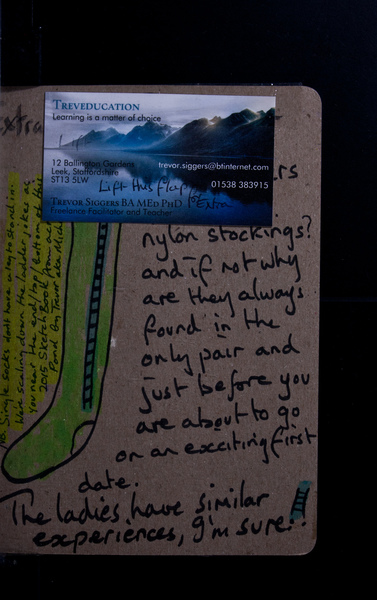 Extra
TREVEDUCATION
Learning is a matter of choice
12 Ballington Gardens
Leek, Staffordshire
ST13 5LW
trevor.siggers@btinternet.com
01538 383915
Lift this flap
TREVOR SIGGERS BA MED PHD
Freelance Facilitator and Teacher
rs
nylon stockings?
and if not why
are they always
found in the
only pair and
just before you
are about to go
on an exciting first
date.
The ladies have similar
experiences, I'm sure!
No. Single socks don't have a leg to stand on.
Were scaling down the ladder jokes as
you near the end/top/bottom of this
2015 Sketch Book from across
Pond by Trevor aka Mich